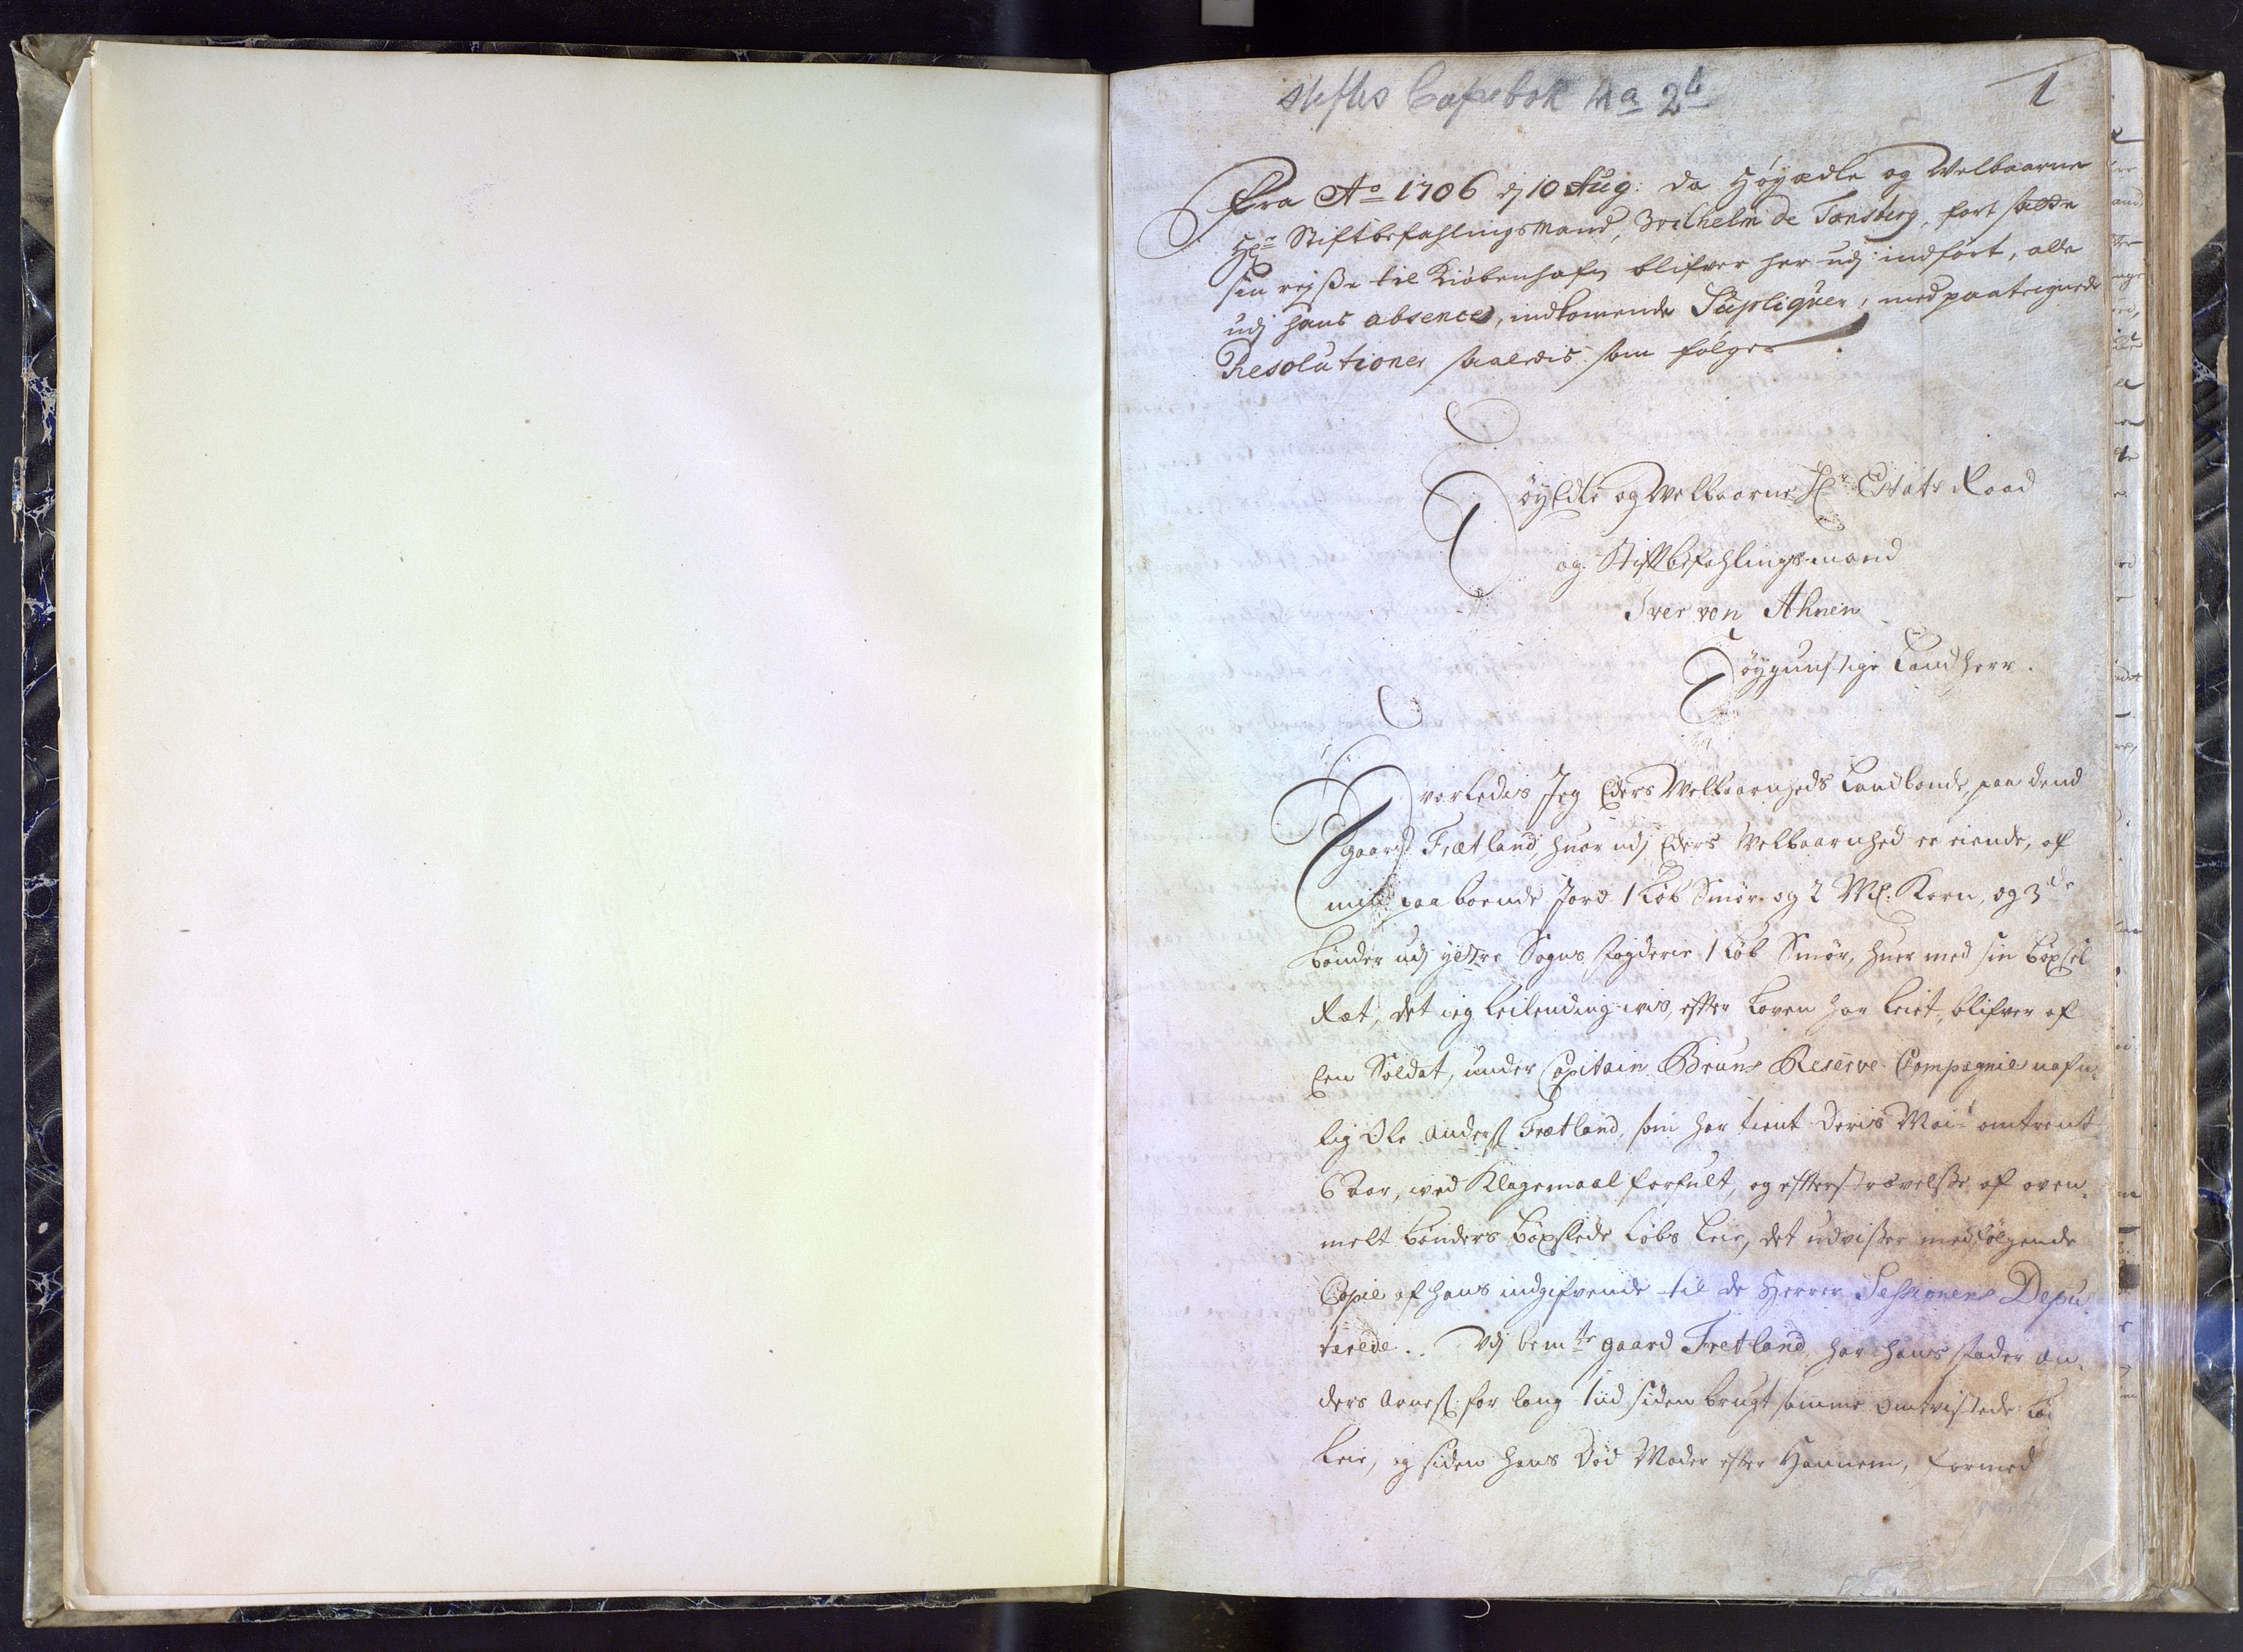 stiftes Copiebok 4a 2b
1
Fra Ao 1706 dj 10 Aug: da Høyædle og Velbaarne
Hr Stiftbefahlingsmand, Wilhelm de Tonsberg, fort
sin rejsse til Kiøbenhafn blifver her udj indført, alle
udj hans absence, indkomende Supliquer, med paateignede
Resolutioner saaledis som følger
Høyædle og Velbaarne Hr Etats Raad
og Stiftbefahlingsmand
Iver von Ahnen
Høygunstige Landherr.
Hvorledis Jeg Eders Velbaarnheds Landbonde, paa dend
gaard Frætland, huor udj Eders Velbaarnhed er eiende, af
mit paa boende Jord 1 Løb Smør og 2 Mll. Korn, og 3de
bønder udj ydtre Sogns fogderie 1 Løb Smør, huer med sin böxsel
Ræt, det ieg leilending-wis, efter Loven har leiet, blifver af
Een Soldat, under Capitain Bruns Reserve-Compagnie nafn-
lig Ole Anders: Frætland, som har tient Deris Mait omtrent
6 aar, med Klagemaal forfult, og efterstrævelsse af oven-
melt bønders böxslede Løbs Leie, det udvisser medfølgende
Copie af hans indgifvende til de Herrer Sessionens Depu-
terede.. Udj bemte gaard Fretland, har hans fader An-
ders Arnes: for lang tiid siden brugt samme omtvistede Lö:
Leie, og siden hans Død Moder efter Hannem, formed